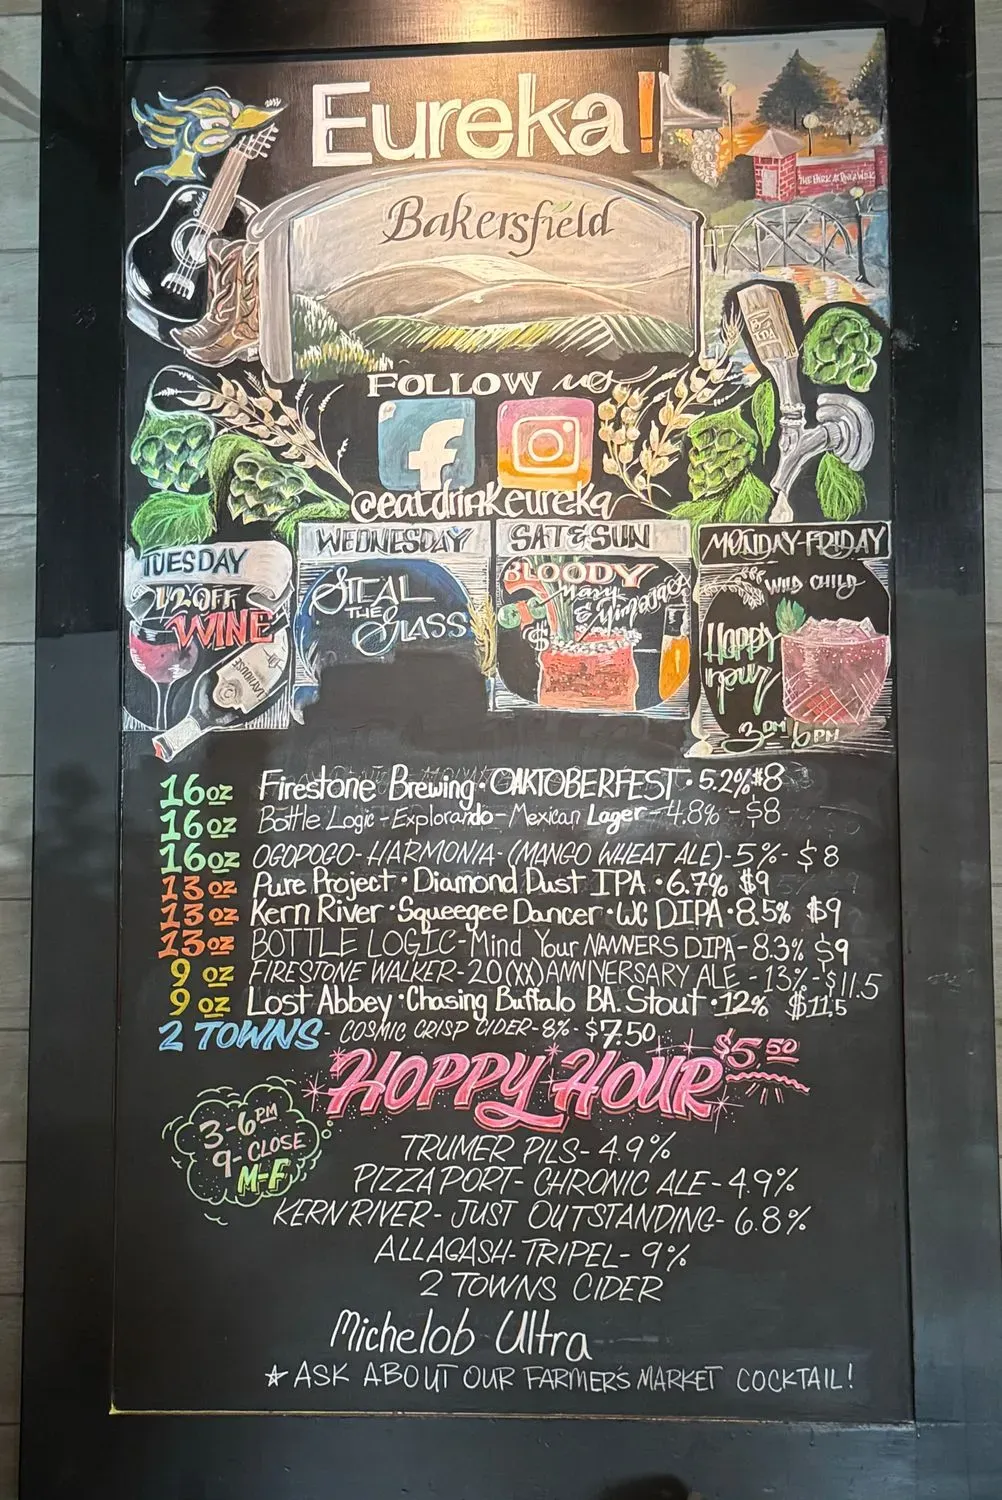 Eureka!
THE PARK AT RIVER WALK
Bakersfield
FOLLOW us
f
@eatdrinkeureka
TUESDAY
1/2 OFF
WINE
WEDNESDAY
STEAL
THE
GLASS
SAT & SUN
BLOODY
Mary
& Mimosas
$
MONDAY-FRIDAY
WILD CHILD
HOPPY
HOUR
3PM 6PM
16oz Firestone Brewing • OAKTOBERFEST • 5.2% $8
16oz Bottle Logic - Explorando - Mexican Lager - 4.8% - $8
16oz OGOPOGO - HARMONIA - (MANGO WHEAT ALE) - 5% - $8
13oz Pure Project • Diamond Dust IPA • 6.7% $9
13oz Kern River • Squeegee Dancer • WC DIPA • 8.5% $9
13oz BOTTLE LOGIC - Mind Your NANNERS DIPA - 8.3% $9
9 oz FIRESTONE WALKER - 20(XX) ANNIVERSARY ALE - 13% - $11.5
9 oz Lost Abbey • Chasing Buffalo BA. Stout • 12% $11.5
2 TOWNS - COSMIC CRISP CIDER - 8% - $7.50
HOPPY HOUR $5.50
3-6PM
9-CLOSE
M-F
TRUMER PILS - 4.9%
PIZZA PORT - CHRONIC ALE - 4.9%
KERN RIVER - JUST OUTSTANDING - 6.8%
ALLAGASH - TRIPEL - 9%
2 TOWNS CIDER
Michelob Ultra
☆ ASK ABOUT OUR FARMER'S MARKET COCKTAIL!